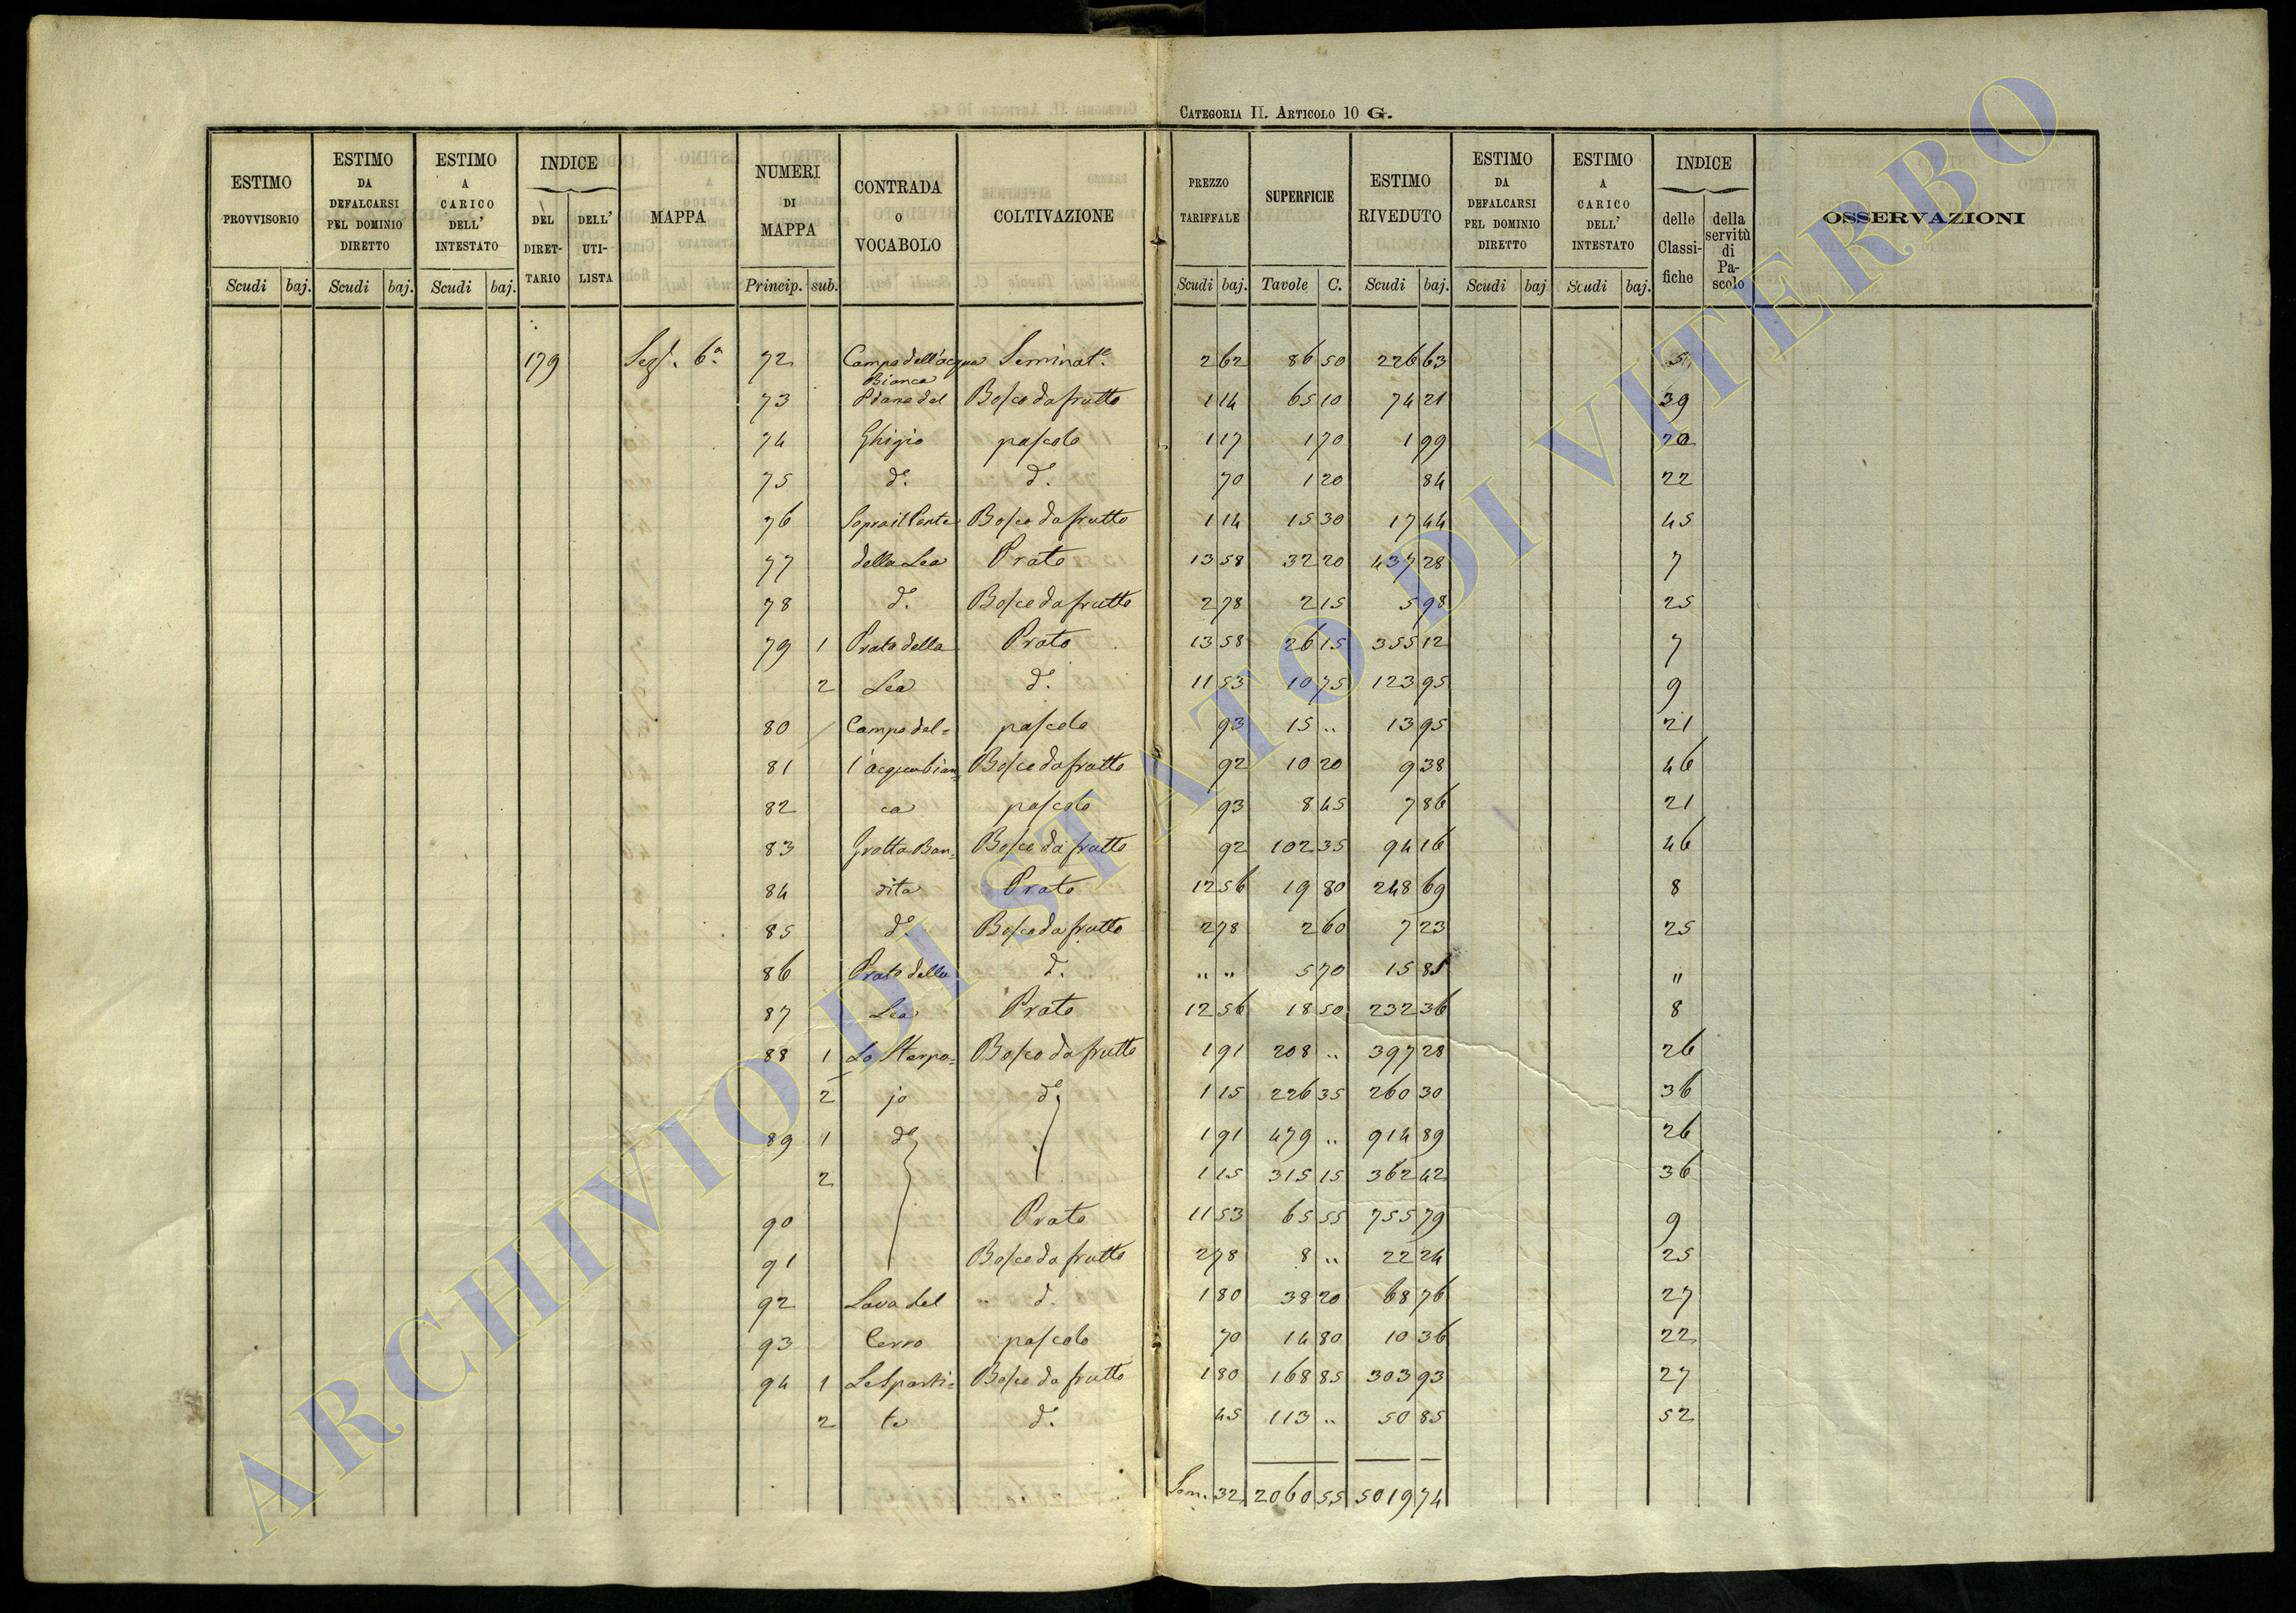 CATEGORIA II. ARTICOLO 10 G.
ESTIMO PROVVISORIO Scudi baj.
ESTIMO DA DEFALCARSI PEL DOMINIO DIRETTO Scudi baj.
ESTIMO A CARICO DELL' INTESTATO Scudi baj.
INDICE DEL DIRETTARIO DELL' UTILISTA
MAPPA
NUMERI DI MAPPA Princip. sub.
CONTRADA O VOCABOLO
COLTIVAZIONE
PREZZO TARIFFALE Scudi baj.
SUPERFICIE Tavole C.
ESTIMO RIVEDUTO Scudi baj.
ESTIMO DA DEFALCARSI PEL DOMINIO DIRETTO Scudi baj
ESTIMO A CARICO DELL' INTESTATO Scudi baj.
INDICE delle Classifiche della servitù di Pascolo
OSSERVAZIONI
179 Sez. 6a 72 Campo dell'acqua Bianca Seminato 2 62 86 50 226 63 5
73 Piano del Bosco da frutto 1 14 65 10 74 21 39
74 Ghigio pascolo 1 17 1 70 1 99 20
75 do. do. 70 1 20 84 22
76 Sopra il Ponte Bosco da frutto 1 14 15 30 17 44 45
77 della Lea Prato 13 58 32 20 437 28 7
78 do. Bosco da frutto 2 78 2 15 5 98 25
79 1 Prato della Prato 13 58 26 15 355 12 7
2 Lea do. 11 53 10 75 123 95 9
80 Campo del= pascolo 93 15 .. 13 95 21
81 l'acquabian= Bosco da frutto 92 10 20 9 38 46
82 ca pascolo 93 8 45 7 86 21
83 Grotta Ban= Bosco da frutto 92 102 35 94 16 46
84 dita Prato 12 56 19 80 248 69 8
85 do. Bosco da frutto 2 78 2 60 7 23 25
86 Prato della do. " " 5 70 15 85 "
87 Lea Prato 12 56 18 50 232 36 8
88 1 Lo Sterpa= Bosco da frutto 1 91 208 .. 397 28 26
2 jo do. 1 15 226 35 260 30 36
89 1 do. 1 91 479 .. 914 89 26
2 1 15 315 15 362 42 36
90 Prato 11 53 65 55 755 79 9
91 Bosco da frutto 2 78 8 .. 22 24 25
92 Lava del do. 1 80 38 20 68 76 27
93 Cerro pascolo 70 14 80 10 36 22
94 1 Le Sparti= Bosco da frutto 1 80 168 85 303 93 27
2 te do. 45 113 .. 50 85 52
Som. 32 2060 55 5019 74
ARCHIVIO DI STATO DI VITERBO